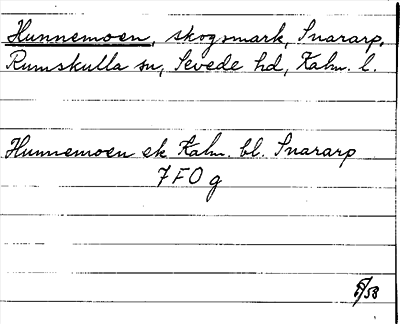 Hunnemoen, skogsmark, Snararp,
Rumskulla sn, Sevede hd, Kalm. l.
Hunnemoen ek Kalm. bl. Snararp
7 F O g